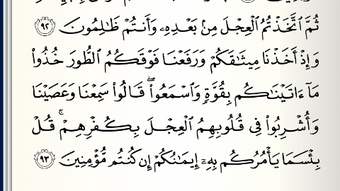 ثُمَّ ٱتَّخَذْتُمُ ٱلْعِجْلَ مِنۢ بَعْدِهِۦ وَأَنتُمْ ظَٰلِمُونَ ٩٢
وَإِذْ أَخَذْنَا مِيثَٰقَكُمْ وَرَفَعْنَا فَوْقَكُمُ ٱلطُّورَ خُذُوا۟
مَآ ءَاتَيْنَٰكُم بِقُوَّةٍ وَٱسْمَعُوا۟ ۖ قَالُوا۟ سَمِعْنَا وَعَصَيْنَا
وَأُشْرِبُوا۟ فِى قُلُوبِهِمُ ٱلْعِجْلَ بِكُفْرِهِمْ ۚ قُلْ
بِئْسَمَا يَأْمُرُكُم بِهِۦٓ إِيمَٰنُكُمْ إِن كُنتُم مُّؤْمِنِينَ ٩٣